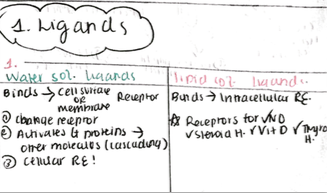 1. Ligands
1.
Water sol. ligands
Binds → Cell surface or membrane Receptor
① Change receptor
② Activates G proteins →
other molecules (cascading)
③ Cellular RE!
lipid sol. ligands
Binds → Intracellular RE.
Receptors for ✓NO
✓Steroid H. ✓Vit D ✓Thyroid H.